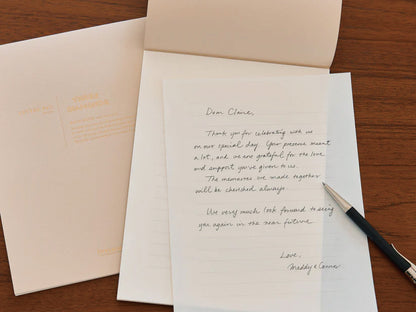 Dear Claire,
Thank you for celebrating with us
on our special day. Your presence meant
a lot, and we are grateful for the love
and support you've given to us.
The memories we made together
will be cherished always.
We very much look forward to seeing
you again in the near future.
Love,
Maddy & Conner